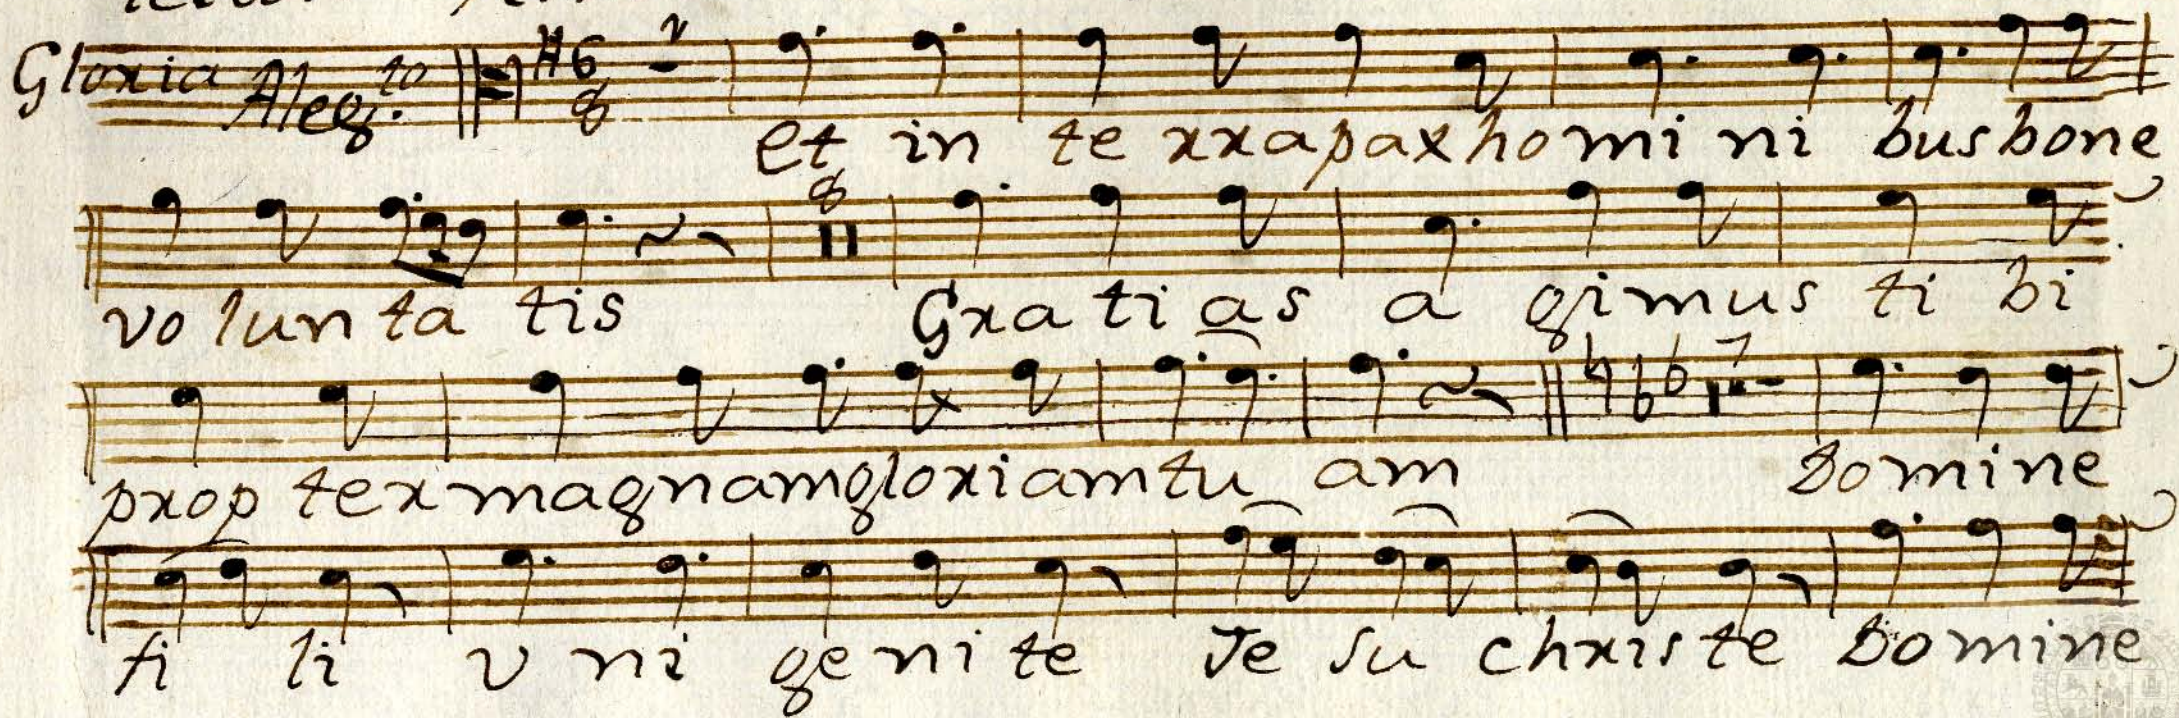 Gloria Aleg.to 6 8
et in te rra pax ho mi ni bus bone
8
vo lun ta tis Gra ti as a gimus ti bi
7
prop ter magnam gloriam tu am Domine
fi li v ni ge ni te Je su chris te Domine